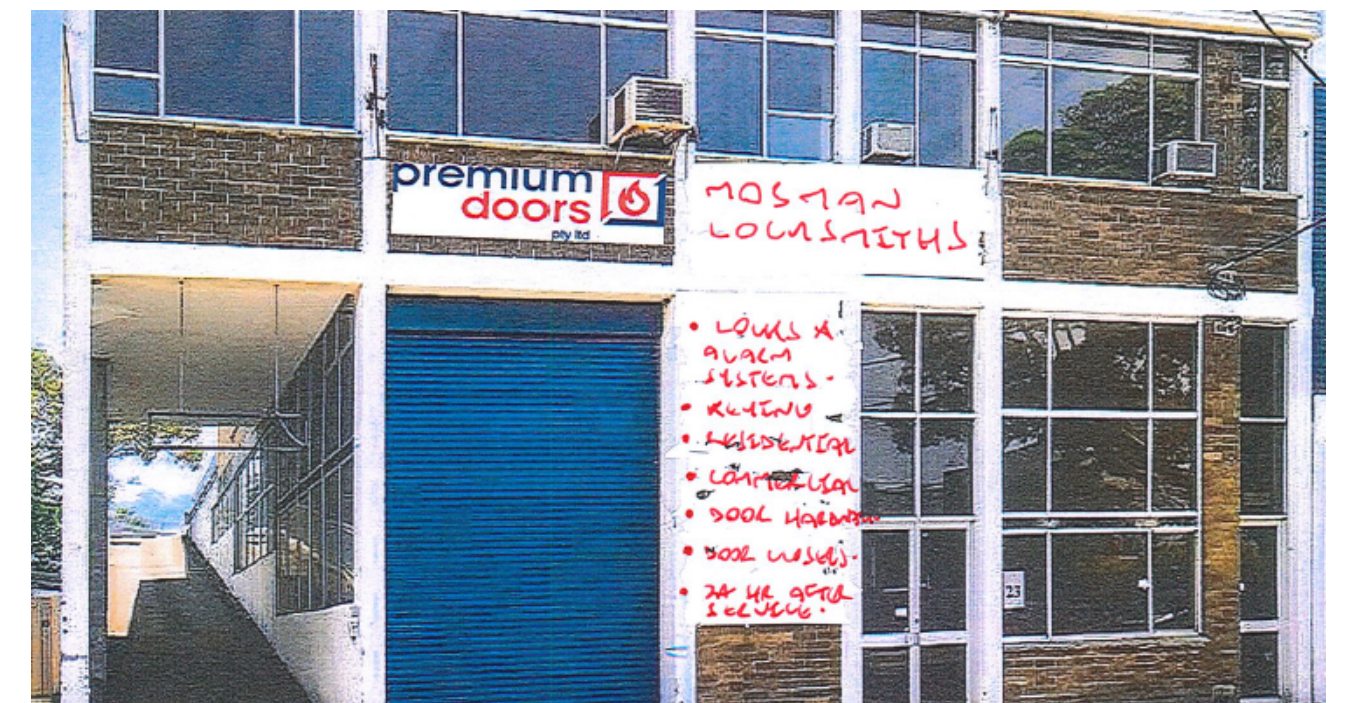 premium
doors
pty ltd
MOSMAN
LOCKSMITHS
• LOCKS &
ALARM
SYSTEMS.
• REKEYING
• RESIDENTIAL
• COMMERCIAL
• DOOR HARDWARE
• DOOR CLOSERS.
• 24 HR AFTER
SERVICE.
23